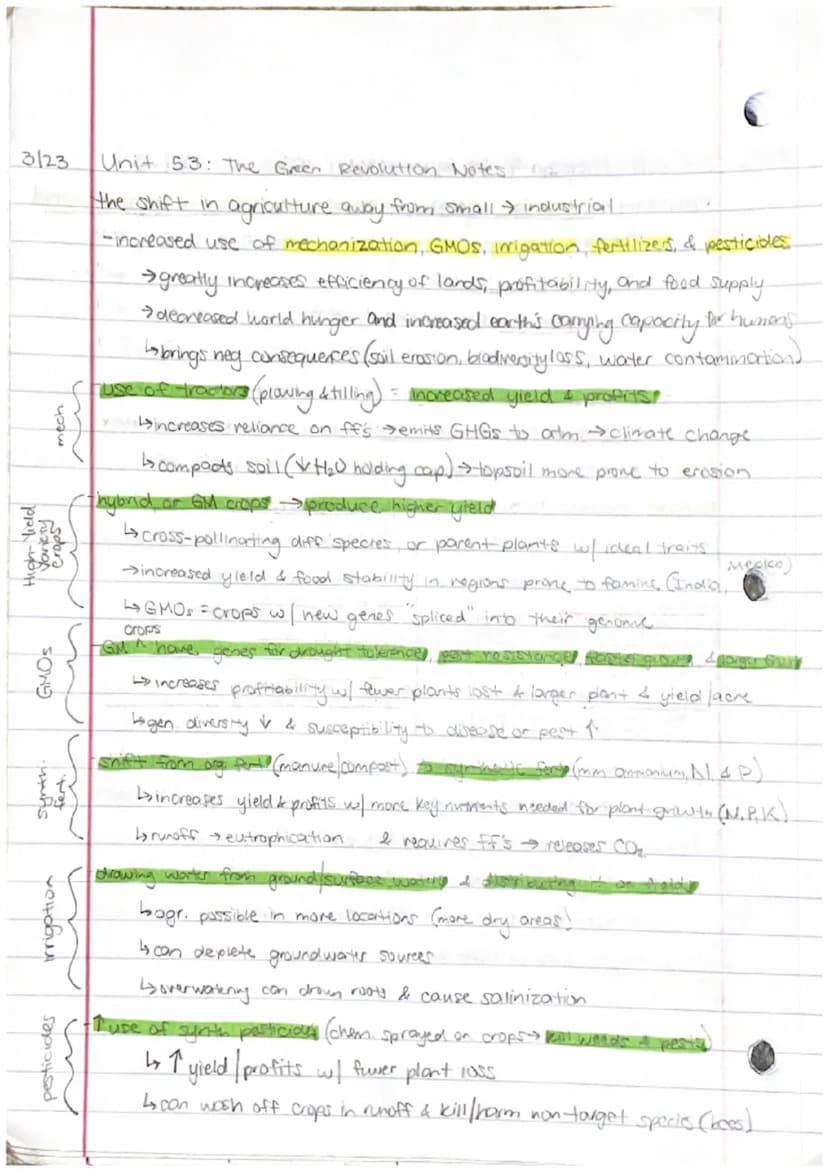 3/23 Unit 5.3: The Green Revolution Notes
the shift in agriculture away from small → industrial
-increased use of mechanization, GMOs, irrigation, fertilizers, & pesticides
→greatly increases efficiency of lands, profitability, and food supply
→decreased world hunger and increased earth's carrying capacity for humans
↳brings neg consequences (soil erosion, biodiversity loss, water contamination)
mech
use of tractors (plowing & tilling) = increased yield & profits
↳increases reliance on ff's →emits GHGs to atm. →climate change
↳compacts soil (↓H₂O holding cap) →topsoil more prone to erosion
High-Yield Variety Crops
-hybrid, or GM crops →produce higher yield
↳cross-pollinating diff species, or parent plants w/ ideal traits
→increased yield & food stability in regions prone to famine (India, Mexico)
↳GMOs = crops w/ new genes "spliced" into their genome
GMOs
-GM ^ crops have genes for drought tolerance, pest resistance, faster growth, & larger fruit
↳increases profitability w/ fewer plants lost & larger plant & yield/acre
↳gen. diversity ↓ & susceptibility to disease or pest ↑
Synth. fert.
shift from org fert (manure/compost) to synthetic fert (mm ammonium, N, & P)
↳increases yield & profits w/ more key nutrients needed for plant growth (N, P, K)
↳runoff → eutrophication & requires ff's → releases CO₂
irrigation
drawing water from ground/surface waters & distributing it on fields
↳agr. possible in more locations (more dry areas)
↳can deplete groundwater sources
↳overwatering can drown roots & cause salinization
pesticides
-↑use of synth pesticides (chem. sprayed on crops→ kill weeds & pests)
↳↑yield/profits w/ fewer plant loss
↳can wash off crops in runoff & kill/harm non-target species (bees)